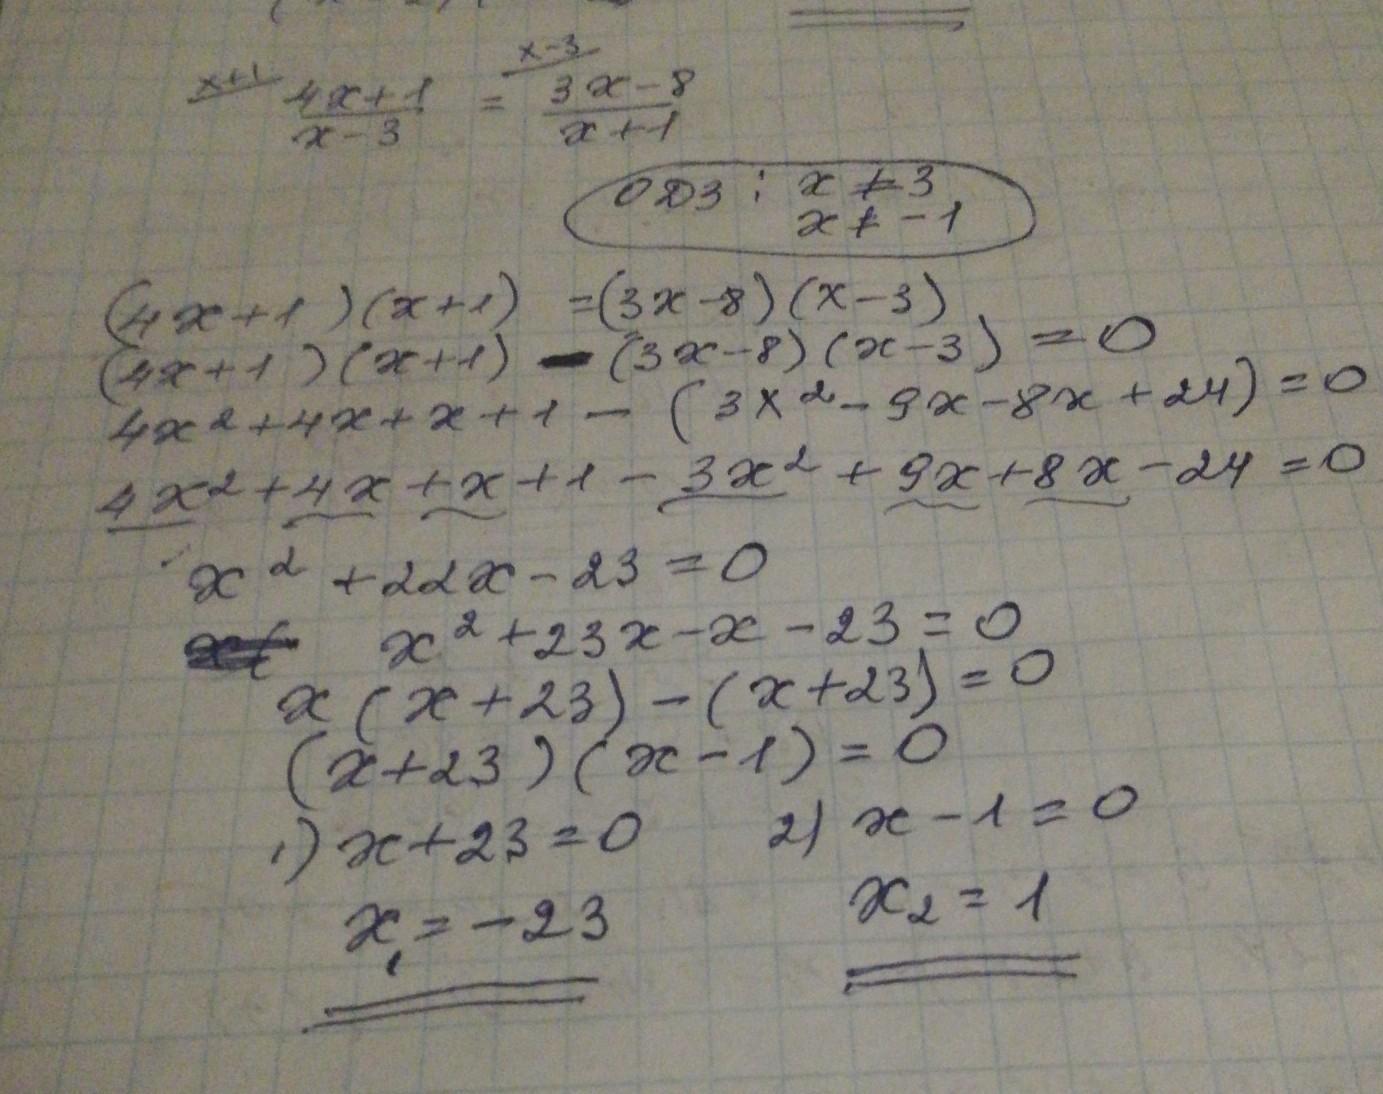 x+1 4x+1 = x-3 3x-8
x-3 x+1
ОДЗ : x ≠ 3
x ≠ -1
(4x+1)(x+1) =(3x-8)(x-3)
(4x+1)(x+1) - (3x-8)(x-3) = 0
4x²+4x+x+1 - (3x²-9x-8x+24) = 0
4x²+4x+x+1 - 3x² + 9x+8x-24 = 0
x² +22x-23 = 0
x²+23x-x-23 = 0
x(x+23)-(x+23) = 0
(x+23)(x-1) = 0
1) x+23 = 0 2) x-1 = 0
x₁ = -23 x₂ = 1